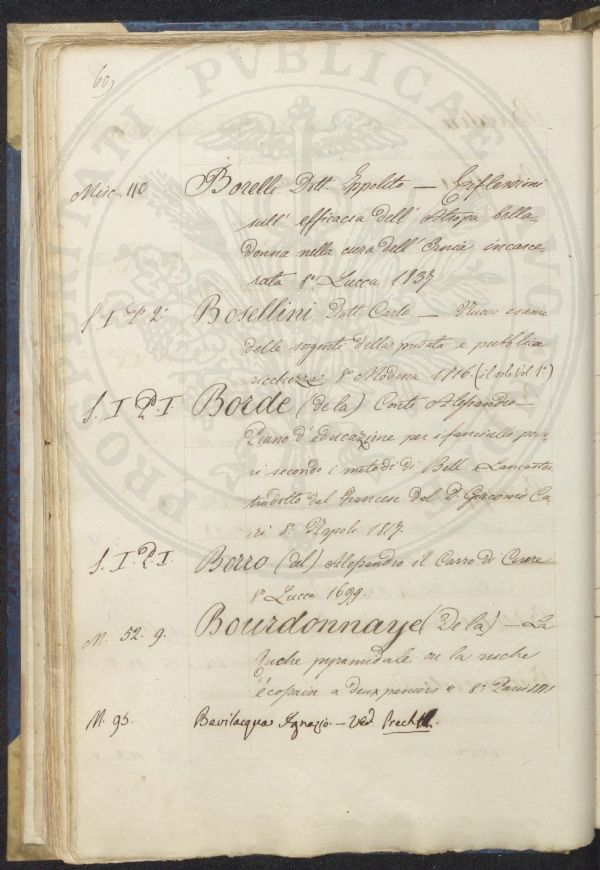 60,
PROSPERITATI PVBLICAE
Misc. 110 Borelli Dott. Ippolito — Riflessioni
sull' efficacia dell' Atropa bella-
donna nella cura dell' Ernia incarce-
rata 8° Lucca 1837
S. I P. 2. Bosellini Dott. Carlo — Nuovo esame
delle sorgenti della privata e pubblica
ricchezza 8° Modena 1816. (il solo Vol. 1°)
S. I P. I Borde (de la) Conte Alessandro —
Piano d'educazione per i fanciulli pove-
ri secondo i metodi di Bell e Lancaster
tradotto dal Francese dal D. Giacomo Ca-
ri 8° Napoli 1817.
S. I. P. I. Borro (del) Alessandro il Carro di Cerere
8° Lucca 1699.
M. 52. 9. Bourdonnaye (De la) — La
Ruche pyramidale ou la ruche
écossaise a deux paniers 8°. Paris
M. 95. Bevilacqua Ignazio. — Ved.